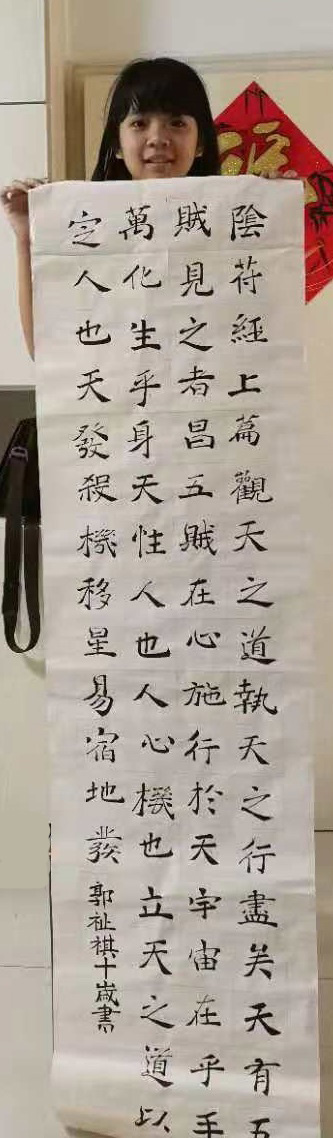 陰符經上篇觀天之道執天之行盡矣天有五
賊見之者昌五賊在心施行於天宇宙在乎手
萬化生乎身天性人也人心機也立天之道以
定人也天發殺機移星易宿地發
郭祉祺十歲書